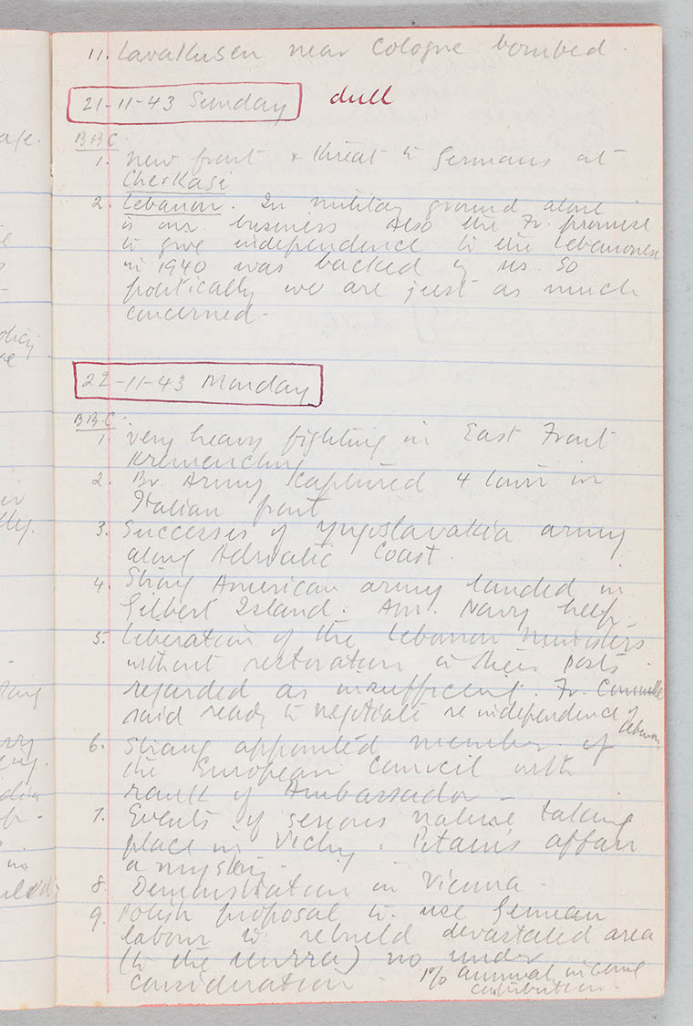 11. Lavakusen near Cologne bombed.
21-11-43 Sunday dull
B.B.C.
1. new front & threat to Germans at
Cherkasi
2. Lebanon. In military ground alone
is our business Also the Fr. promise
to give independence to the Lebanonese
in 1940 was backed by us. So
politically we are just as much
concerned.
22-11-43 Monday
B.B.C.
1. very heavy fighting in East Front
Kremenchug
2. Br. Army captured 4 town in
Italian front
3. Successes of Yugoslavakia army
along Adriatic Coast.
4. Strong American army landed in
Gilbert Island. Am. Navy help.
5. Liberation of the Lebanon ministers
without restoration to their posts
regarded as insufficient. Fr. Committe
said ready to negotiate re independence of
Lebanon
6. Strang appointed member of
the European Council with
rank of Ambassador -
7. Events of serious nature taking
place in Vichy. Petain's affair
a mystery.
8. Demonstration in Vienna.
9. Polish proposal to use German
labour to rebuild devastated area
(to the Unrra) no under
consideration. 1% annual income
contribution.